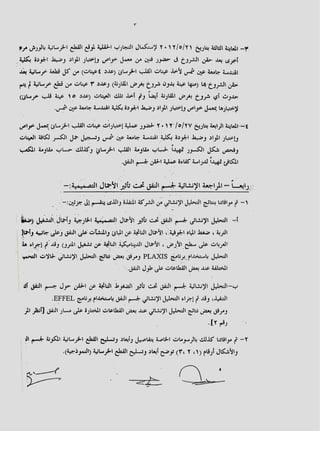 ٣
٣- المعاينة الثالثة بتاريخ ٢٠١٢/٥/٢١ لإستكمال التجارب الحقلية لموقع القطع الخرسانية بالورش مرة
أخرى بعد حقن الشروخ فى حضور فنين من معمل خواص وإختبار المواد وضبط الجودة بكلية
الهندسة جامعة عين شمس لأخذ عينات القلب الخرسانى (عدد ٤ عينات) من كل قطعة خرسانية بعد
حقن الشروخ بها (ومنها عينة بدون شروخ بغرض المقارنة) وعدد ٣ عينات من قطع خرسانية لم يتم
حدوث أى شروخ بغرض المقارنة أيضاً وتم أخذ تلك العينات (عدد ١٥ عينة قلب خرسانى)
لإختبارها بمعمل خواص وإختبار المواد وضبط الجودة بكلية الهندسة جامعة عين شمس.
٤- المعاينة الرابعة بتاريخ ٢٠١٢/٥/٢٧ حضور عملية إختبارات عينات القلب الخرسانى بمعمل خواص
وإختبار المواد وضبط الجودة بكلية الهندسة جامعة عين شمس وتسجيل حمل الكسر لكافة العينات
وفحص شكل الكسور تمهيداً لحساب مقاومة القلب الخرسانى وكذلك حساب مقاومة المكعب
المكافئ تمهيداً لدراسة كفاءة عملية الحقن لجسم النفق.
رابعــاً – المراجعة الإنشائية لجسم النفق تحت تأثير الأحمال التصميمية:-
١- تم موافاتنا بنتائج التحليل الإنشائى من الشركة المنفذة والذى ينقسم إلى جزئين:-
أ- التحليل الإنشائى لجسم النفق تحت تأثير الأحمال التصميمية الخارجية وأحمال التشغيل (ضغط
التربة، ضغط المياه الجوفية، الأحمال الناتجة عن المبانى والمنشآت على النفق وعلى جانبيه وأحمال
العربات على سطح الأرض، الأحمال الديناميكية الناتجة عن تشغيل المترو) وقد تم إجراء هذا
التحليل باستخدام برنامج PLAXIS ومرفق بعض نتائج التحليل الإنشائى لحالات التحميل
المختلفة عند بعض القطاعات على طول النفق.
ب- التحليل الإنشائى لجسم النفق تحت تأثير الضغوط الناتجة عن الحقن حول جسم النفق أثناء
التنفيذ، وقد تم إجراء التحليل الإنشائى لجسم النفق باستخدام برنامج EFFEL.
ومرفق بعض نتائج التحليل الإنشائى عند بعض القطاعات المختارة على مسار النفق [أنظر المرفق
رقم ٢].
٢- تم موافاتنا كذلك بالرسومات الخاصة بتفاصيل وأبعاد وتسليح القطع الخرسانية المكونة لجسم النفق
والأشكال أرقام (١، ٢، ٣) توضح أبعاد وتسليح القطع الخرسانية (النموذجية).